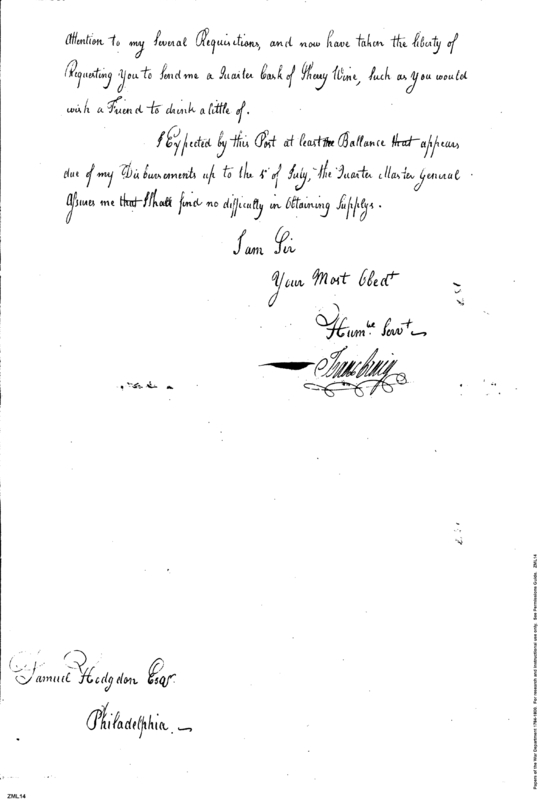 Attention to my Several Requisitions, and now have taken the liberty of
Requesting You to Send me a Quarter Cask of Sherry Wine, Such as You would
wish a Friend to drink a little of.
I Expected by this Post at least the Ballance that appears
due of my Disbursements up to the 5th of July, the Quarter Master General
Assures me that I Shall find no difficulty in Obtaining Supplys.
I am Sir
Your Most Obedt
Humble Servt
Isaac Craig
Samuel Hodgdon Esqr.
Philadelphia.
ZML14
Papers of the War Department 1784-1800. For research and instructional use only. See Permissions Guide. ZML14